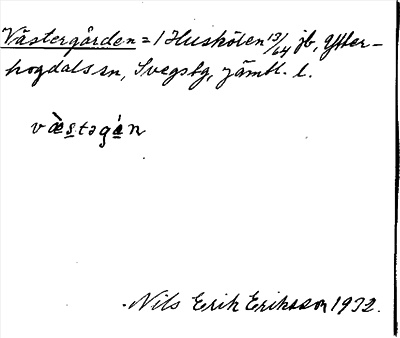 Västergården = 1 Huskölen 13/64 jb, Ytter-
hogdals sn, Svegs tg, Jämtl. l.
væ̀stəgá̱n
Nils Erik Eriksson 1932.